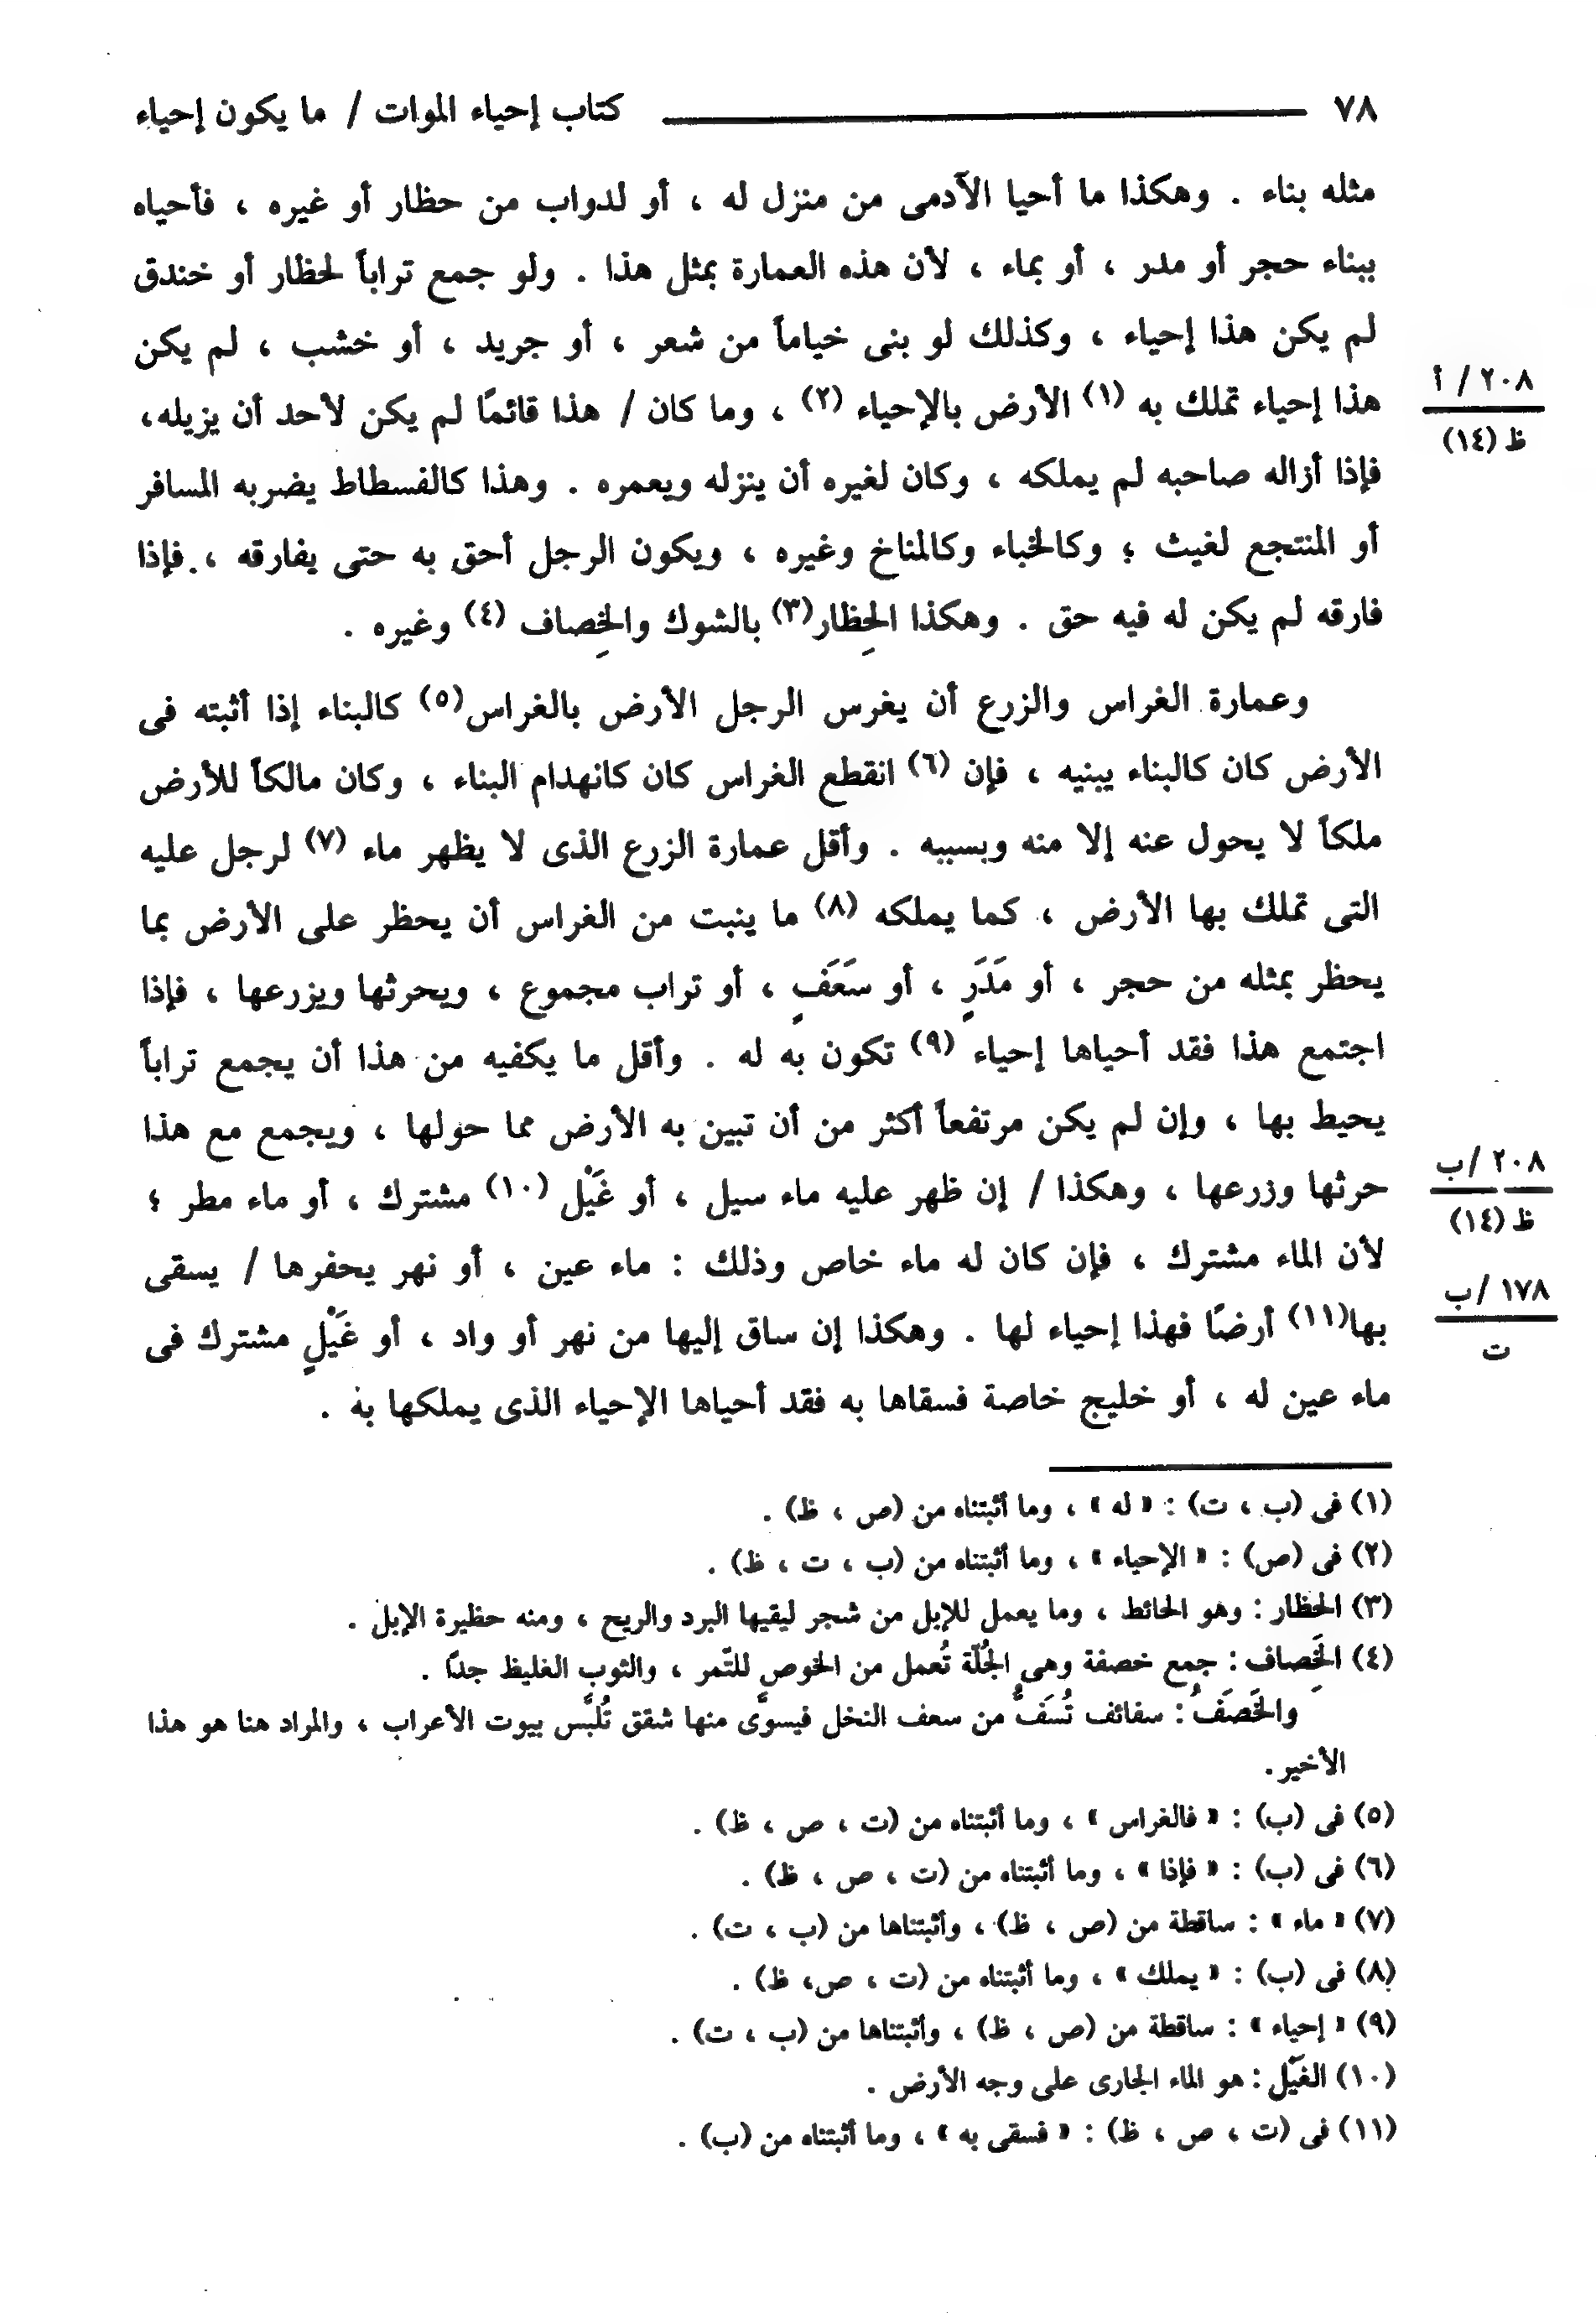 ٧٨ كتاب إحياء الموات / ما يكون إحياء
مثله بناء . وهكذا ما أحيا الآدمى من منزل له ، أو لدواب من حظار أو غيره ، فأحياه
ببناء حجر أو مدر ، أو بماء ، لأن هذه العمارة بمثل هذا . ولو جمع تراباً لحظار أو خندق
لم يكن هذا إحياء ، وكذلك لو بنى خياماً من شعر ، أو جريد ، أو خشب ، لم يكن
هذا إحياء تملك به (١) الأرض بالإحياء (٢) ، وما كان / هذا قائمًا لم يكن لأحد أن يزيله،
٢٠٨ / أ
ظ (١٤)
فإذا أزاله صاحبه لم يملكه ، وكان لغيره أن ينزله ويعمره . وهذا كالفسطاط يضربه المسافر
أو المنتجع لغيث ؛ وكالخباء وكالمناخ وغيره ، ويكون الرجل أحق به حتى يفارقه ، فإذا
فارقه لم يكن له فيه حق . وهكذا الحِظار(٣) بالشوك والخِصاف (٤) وغيره .
وعمارة الغراس والزرع أن يغرس الرجل الأرض بالغراس(٥) كالبناء إذا أثبته فى
الأرض كان كالبناء يبنيه ، فإن (٦) انقطع الغراس كان كانهدام البناء ، وكان مالكاً للأرض
ملكاً لا يحول عنه إلا منه وبسببه . وأقل عمارة الزرع الذى لا يظهر ماء (٧) لرجل عليه
التى تملك بها الأرض ، كما يملكه (٨) ما ينبت من الغراس أن يحظر على الأرض بما
يحظر بمثله من حجر ، أو مَدَرٍ ، أو سَعَفٍ ، أو تراب مجموع ، ويحرثها ويزرعها ، فإذا
اجتمع هذا فقد أحياها إحياء (٩) تكون به له . وأقل ما يكفيه من هذا أن يجمع تراباً
يحيط بها ، وإن لم يكن مرتفعاً أكثر من أن تبين به الأرض مما حولها ، ويجمع مع هذا
حرثها وزرعها ، وهكذا / إن ظهر عليه ماء سيل ، أو غَيْل (١٠) مشترك ، أو ماء مطر ؛
٢٠٨ /ب
ظ (١٤)
لأن الماء مشترك ، فإن كان له ماء خاص وذلك : ماء عين ، أو نهر يحفرها / يسقى
١٧٨ /ب
ت
بها(١١) أرضًا فهذا إحياء لها . وهكذا إن ساق إليها من نهر أو واد ، أو غَيْلٍ مشترك فى
ماء عين له ، أو خليج خاصة فسقاها به فقد أحياها الإحياء الذى يملكها به .
(١) فى (ب ، ت) : « له » ، وما أثبتناه من (ص ، ظ) .
(٢) فى (ص) : « الإحياء » ، وما أثبتناه من (ب ، ت ، ظ) .
(٣) الحظار : وهو الحائط ، وما يعمل للإبل من شجر ليقيها البرد والريح ، ومنه حظيرة الإبل .
(٤) الخَِصاف : جمع خصفة وهى الجُلّة تُعمل من الخوص للتّمر ، والثوب الغليظ جدًا .
والخَصَفُ : سفائف تُسَفُّ من سعف النخل فيسوَّى منها شقق تُلبَّس بيوت الأعراب ، والمراد هنا هو هذا
الأخير .
(٥) فى (ب) : « فالغراس » ، وما أثبتناه من (ت ، ص ، ظ) .
(٦) فى (ب) : « فإذا » ، وما أثبتناه من (ت ، ص ، ظ) .
(٧) « ماء » : ساقطة من (ص ، ظ) ، وأثبتناها من (ب ، ت) .
(٨) فى (ب) : « يملك » ، وما أثبتناه من (ت ، ص، ظ) .
(٩) « إحياء » : ساقطة من (ص ، ظ) ، وأثبتناها من (ب ، ت) .
(١٠) الغَيْل : هو الماء الجارى على وجه الأرض .
(١١) فى (ت ، ص ، ظ) : « فسقى به » ، وما أثبتناه من (ب) .